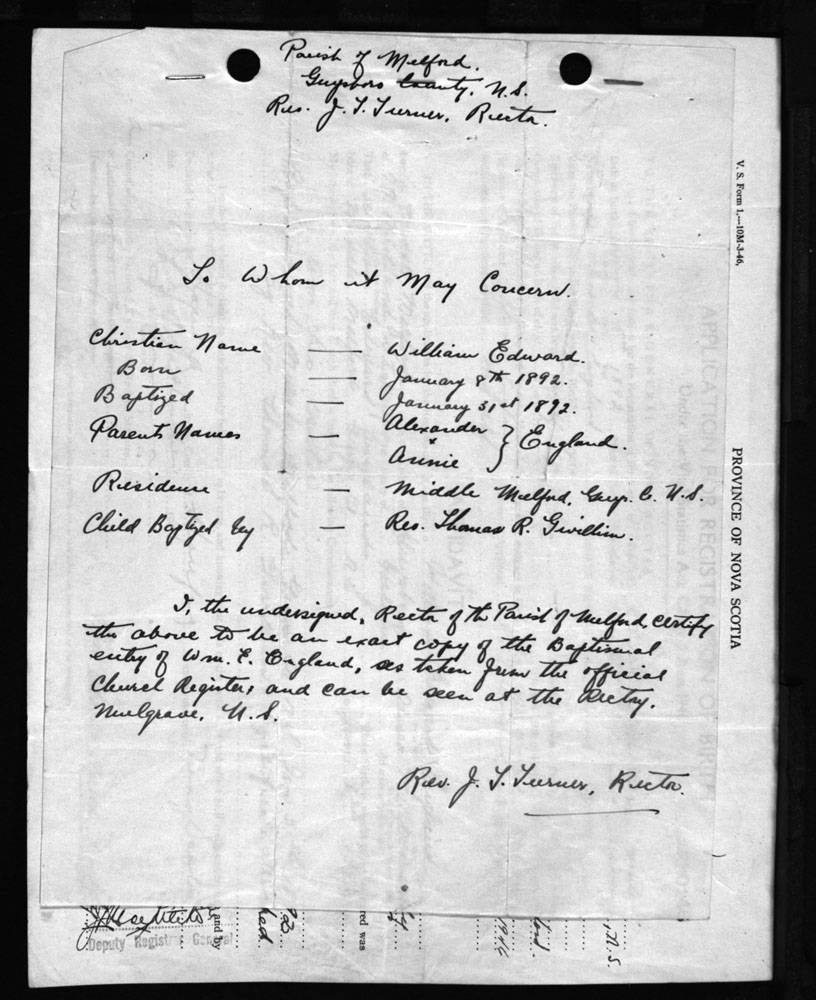 Parish of Melford.
Guysboro County, N.S.
Rev. J. T. Turner, Rector.
To Whom it May Concern.
Christian Name — William Edward.
Born — January 8th 1892.
Baptized — January 31st 1892.
Parents Names — Alexander
& } England.
Annie
Residence — Middle Melford, Guys. C. N.S.
Child Baptized by — Rev. Thomas R. Gwillim.
I, the undersigned, Rector of the Parish of Melford, certify
the above to be an exact copy of the Baptismal
entry of Wm. E. England, as taken from the official
Church Registers and can be seen at the Rectory,
Mulgrave, N.S.
Rev. J. T. Turner, Rector.
V. S. Form 1.—10M-3-46.
PROVINCE OF NOVA SCOTIA
APPLICATION FOR REGISTRATION OF BIRTH
Deputy Registrar General
and by
red was
1946
N.S.